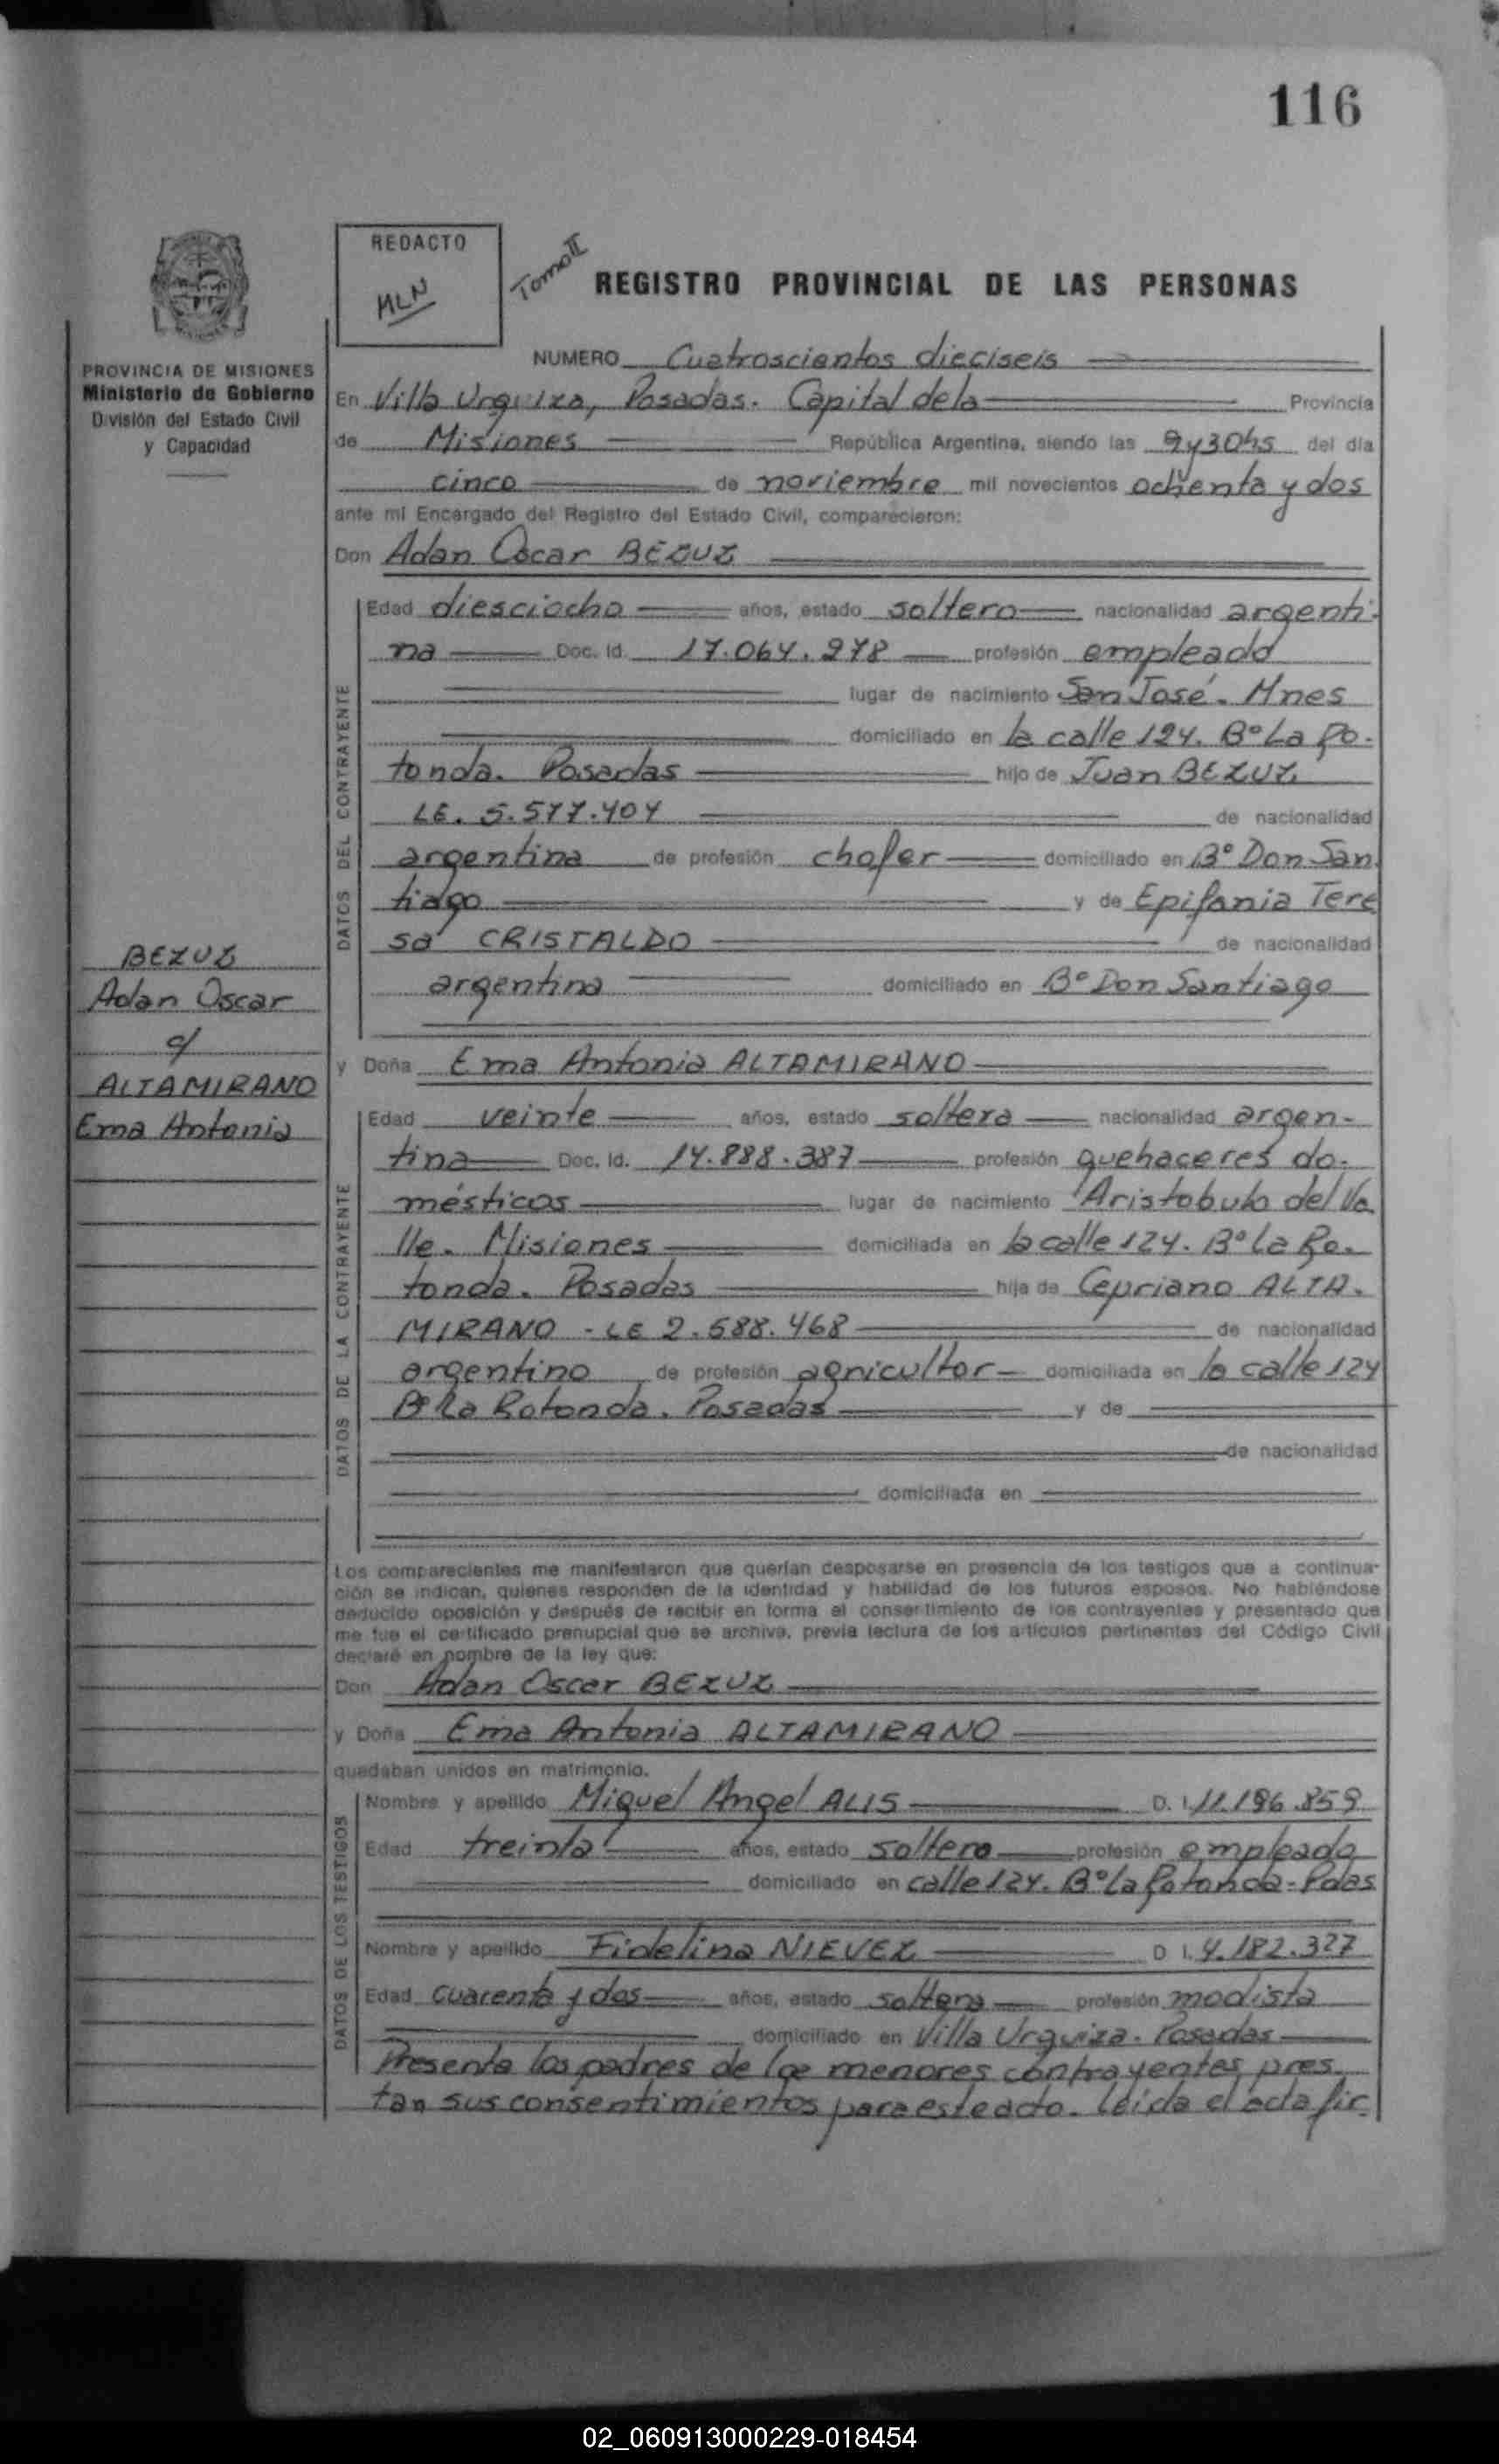 116
REDACTO
MLN
Tomo II
REGISTRO PROVINCIAL DE LAS PERSONAS
PROVINCIA DE MISIONES
Ministerio de Gobierno
División del Estado Civil
y Capacidad
NUMERO Cuatroscientos dieciseis
En Villa Urquiza, Posadas. Capital de la Provincia
de Misiones República Argentina, siendo las 9y30hs del día
cinco de noviembre mil novecientos ochenta y dos
ante mi Encargado del Registro del Estado Civil, comparecieron:
Don Adan Oscar BEZUZ
DATOS DEL CONTRAYENTE
Edad diesciocho años, estado soltero nacionalidad argenti-
na Doc. Id. 17.064.278 profesión empleado
lugar de nacimiento San José. Mnes
domiciliado en la calle 124. Bº La Ro-
tonda. Posadas hijo de Juan BEZUZ
LE. 5.577.404 de nacionalidad
argentina de profesión chofer domiciliado en Bº Don San
tiago y de Epifania Tere
sa CRISTALDO de nacionalidad
argentina domiciliado en Bº Don Santiago
BEZUZ
Adan Oscar
c/
ALTAMIRANO
Ema Antonia
y Doña Ema Antonia ALTAMIRANO
DATOS DE LA CONTRAYENTE
Edad veinte años, estado soltera nacionalidad argen-
tina Doc. Id. 14.888.387 profesión quehaceres do-
mésticos lugar de nacimiento Aristobulo del Va
lle. Misiones domiciliada en la calle 124. Bº La Ro-
tonda. Posadas hija de Cepriano ALTA-
MIRANO - LE 2.588.468 de nacionalidad
argentino de profesión agricultor domiciliada en la calle 124
Bº La Rotonda. Posadas y de
de nacionalidad
domiciliada en
Los comparecientes me manifestaron que querían desposarse en presencia de los testigos que a continua-
ción se indican, quienes responden de la identidad y habilidad de los futuros esposos. No habiéndose
deducido oposición y después de recibir en forma el consentimiento de los contrayentes y presentado que
me fue el certificado prenupcial que se archiva, previa lectura de los artículos pertinentes del Código Civil
declaré en nombre de la ley que:
Don Adan Oscar BEZUZ
y Doña Ema Antonia ALTAMIRANO
quedaban unidos en matrimonio.
DATOS DE LOS TESTIGOS
Nombre y apellido Miguel Angel ALIS D. I. 11.196.859
Edad treinta años, estado soltero profesión empleado
domiciliado en calle 124. Bº La Rotonda-Pdas
Nombre y apellido Fidelina NIEVEZ D I. 4.182.327
Edad cuarenta y dos años, estado soltera profesión modista
domiciliado en Villa Urquiza. Posadas
Presente los padres de los menores contrayentes pres
tan sus consentimientos para este acto. Leida el acta fir
02_060913000229-018454